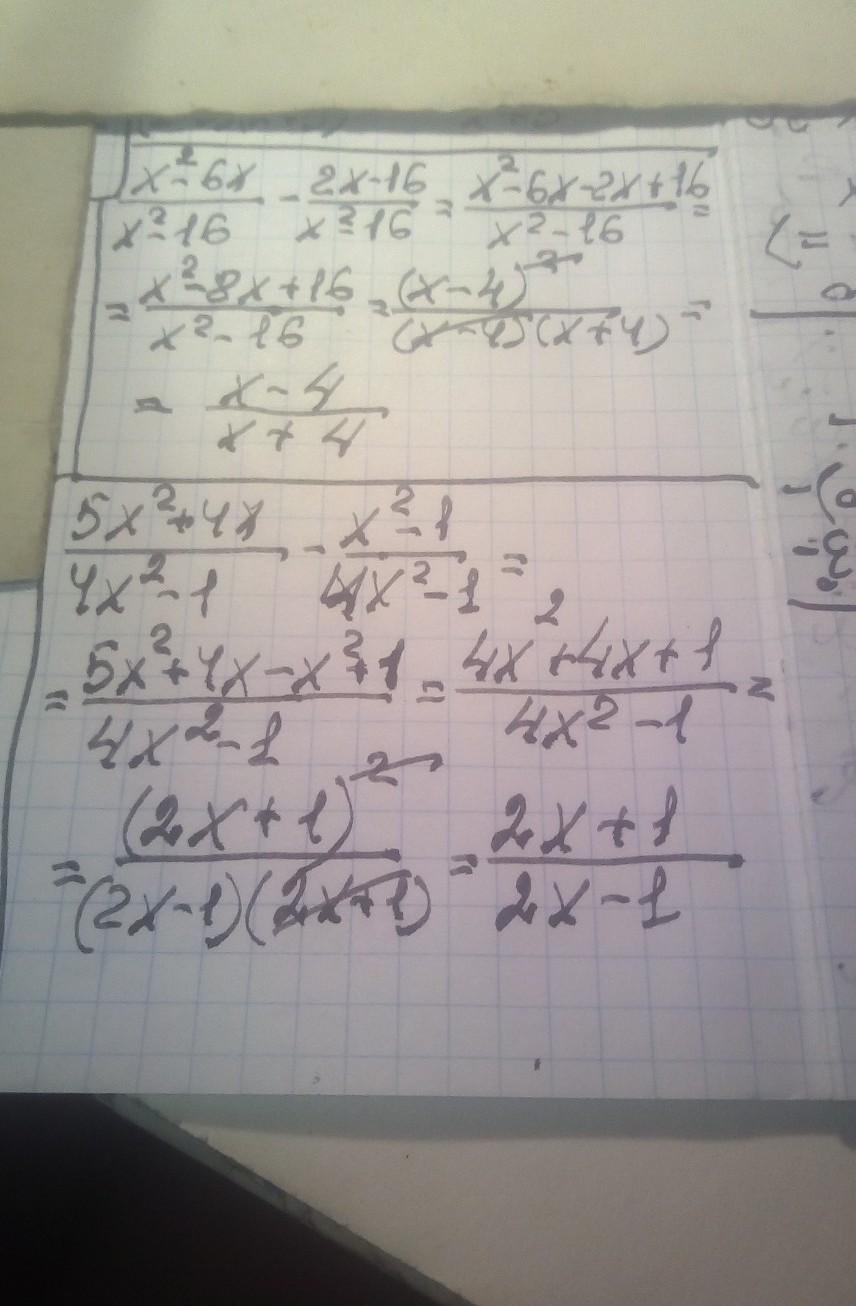 x²-6x/x²-16 - 2x-16/x²-16 = x²-6x-2x+16/x²-16 =
= x²-8x+16/x²-16 = (x-4)²/(x-4)(x+4) =
= x-4/x+4
5x²+4x/4x²-1 - x²-1/4x²-1 =
= 5x²+4x-x²+1/4x²-1 = 4x²+4x+1/4x²-1 =
= (2x+1)²/(2x-1)(2x+1) = 2x+1/2x-1